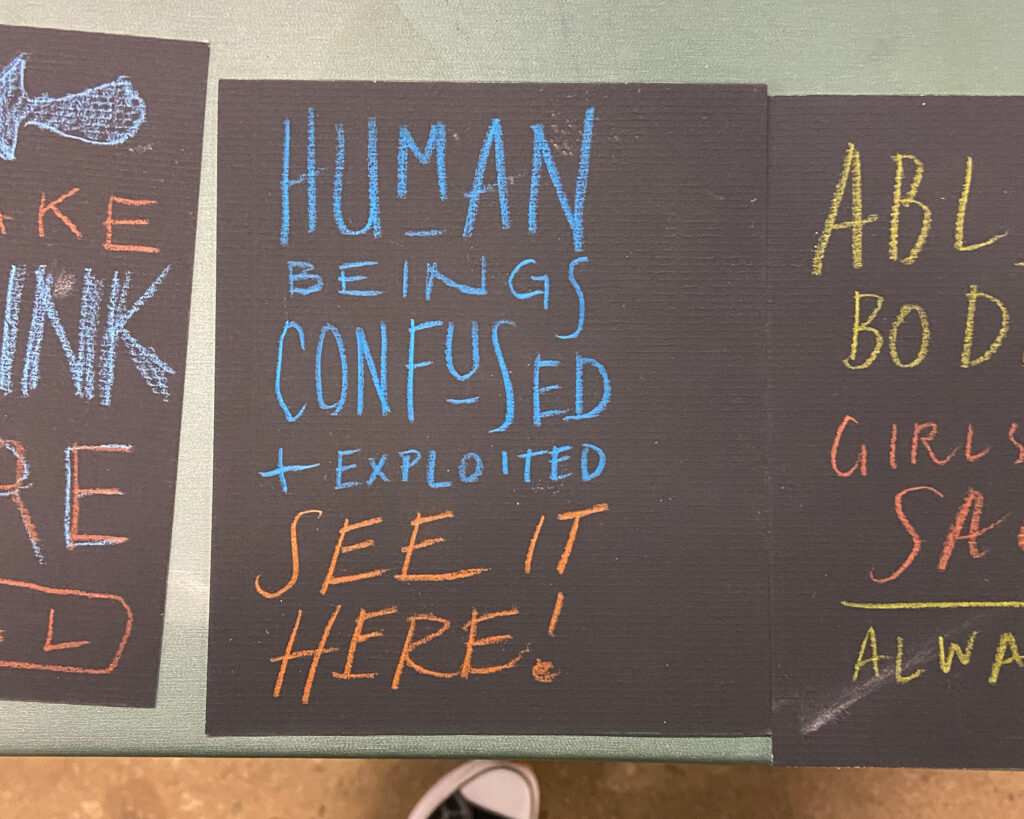 AKE
INK
RE
L
HUMAN
BEINGS
CONFUSED
+ EXPLOITED
SEE IT
HERE!
ABL
BOD
GIRLS
SA
ALWA